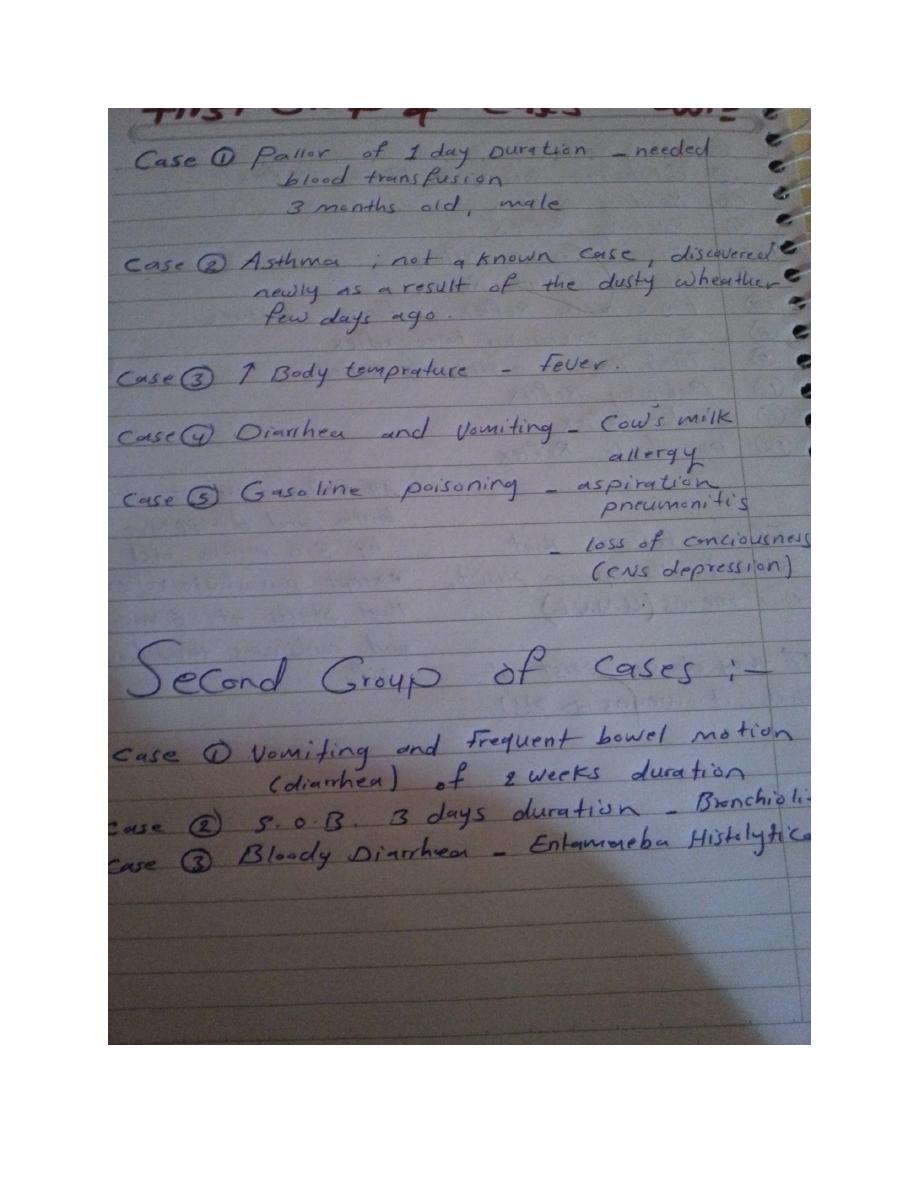 Case ① Pallor of 1 day Duration - needed
blood transfusion
3 months old, male
Case ② Asthma ; not a known case, discovered
newly as a result of the dusty wheather
few days ago.
Case ③ ↑ Body temprature - fever.
Case ④ Diarrhea and Vomiting - Cow's milk
allergy
Case ⑤ Gasoline poisoning - aspiration
pneumonitis
- loss of conciousness
(CNS depression)
Second Group of Cases :-
Case ① Vomiting and frequent bowel motion
(diarrhea) of 2 weeks duration
Case ② S.O.B. 3 days duration - Bronchioli
Case ③ Bloody Diarrhea - Entamoeba Histolytica